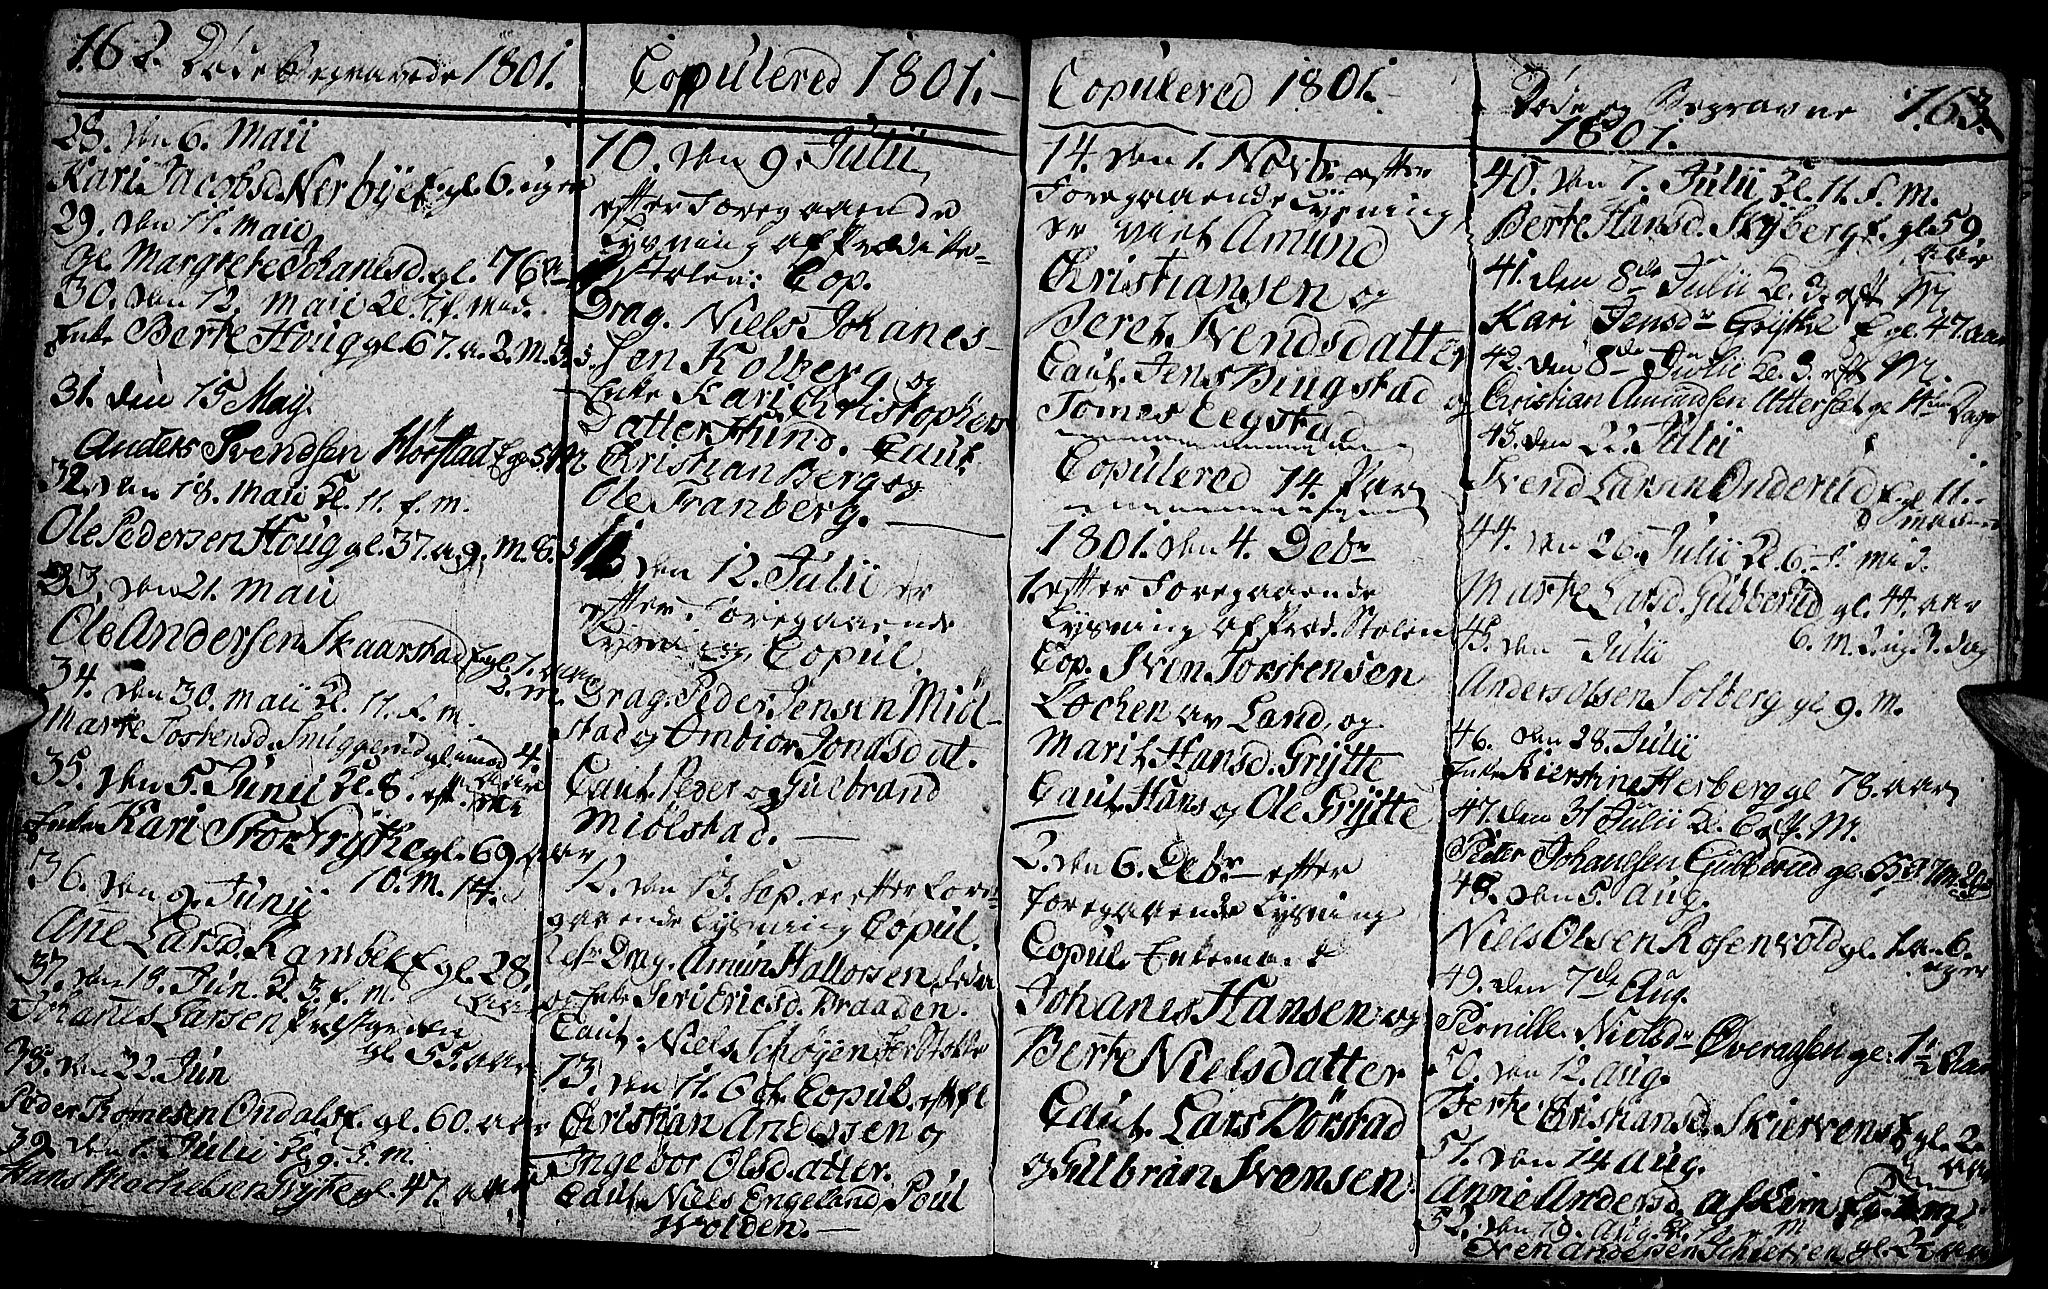 162. Døde Begravede 1801.
28. den 6. Maii
Kari Jacobsd. Nerbye f. gl. 6. uger
29. den 11. Maii
gl. Margrete Johanesd. gl. 76 a
30. den 12. Maii Kl. 7. f. Mid.
Enke Berte Houg gl. 67. a. 2. M. 3.
31. den 15 May.
Anders Svendsen Horstad f. gl. 5. M
32. den 18. Maii Kl. 11. f. m.
Ole Pedersen Houg gl. 37. a. 9. M. 8.
33. den 21. Maii
Ole Andersen Skaarstad f. gl. 7. aar
2. m.
34. den 30. Maii Kl. 11. f. M.
Marte Tostensd. Smiggerud gl. 4.
aar
35. den 5. Junii Kl. 8. eft.
Enke Kari Stor Grytte gl. 69. aar
10. M. 14.
36. den 9. Junii
Ane Larsd. Rambek f. gl. 28.
37. den 18. Jun. Kl. 3. f. m.
Johanes Larsen Prestgrden
gl. 55. aar
38. den 22. Jun
Peder Tomesen Ondals f. gl. 60. aar
39. den 1. Julii Kl. 9. f. m.
Hans Mochelsen Grytte gl. 47. aar
Copulered 1801.
10. den 9. Julii
efter Foregaaende
Lysning af Prædike-
Stolen: Cop.
Drag. Niels Johanes-
sen Kolberg og
Enke Kari Christophers
Datter Hund. Caut.
Christian Berg og
Ole Tranberg.
11. den 12. Julii er
efter Foregaaende
Lysning Copul.
Drag. Peder Jensen Miøl-
stad og Ombior Jonasdat.
Caut. Peder og Gulbrand
Miølstad.
12. den 13. Sep. er efter Fore-
gaaende Lysning Copul.
Drag. Amun Hallorsen
og Enke Seri Ericsd. Braaden.
Caut. Niels Schøyen
13. den 11. Oct. Copul. eft
Christian Andersen og
Ingebor Olsdatter.
Caut. Niels Engeland, Poul
Wolden.
Copulered 1801.
14. den 1. Novb. efter
Foregaaende Lysning
er viet Amund
Christiansen og
Beret Svendsdatter
Caut. Jens Dingstad og
Tomes Eegstad
Copulered 14. Par
1801. den 4. Debr
1. efter Foregaaende
Lysning af Præd. Stolen
Cop. Sven Torstensen
Lochen av Land, og
Marit Hansd. Grytte
Caut. Hans og Ole Grytte
2. den 6. Debr efter
Foregaaende Lysning
Copul. Enkemand
Johanes Hansen og
Berte Nielsdatter
Caut. Lars Dørstad
og Gulbran Svensen.
Døde og Begravne 163.
1801.
40. den 7. Julii Kl. 11. f. m.
Berte Hansd. Skyberg f. gl. 59
aar
41. den 8de Julii Kl. 3. eft M.
Kari Jensdr Grytte f gl. 47. aar
42. den 8de Julii Kl. 3. eft M.
Christian Amundsen Atterset gl 14 Dage
43. den 22. Julii
Svend Larsen Onderud f. gl 11.
maaneder
44. den 26. Julii Kl. 6. f. mid.
Marte Larsd. Gubberud gl. 44. aar
6. m. 3. ug. 3. dag
45. den Julii
Anders Olsen Solberg gl 9. m.
46. den 28. Julii
Enke Kierstine Herberg gl 78. aar
47. den 31 Julii Kl. 6 f. M.
Peder Johansen Gubberud gl. 63
48. den 5. Aug.
Niels Olsen Rosenvold gl. 6.
uger
49. den 7de Aug.
Pernille Nielsdr Øveraasen gl. 1½ Aar
50. den 12. Aug.
Berte Cristiansd. Skierven f. gl. 2.
aar
51. den 14. Aug.
Anne Andersd. Askim
52. den 19. Aug. Kl. 12. f. M
Sven Andersen gl. 22 aar